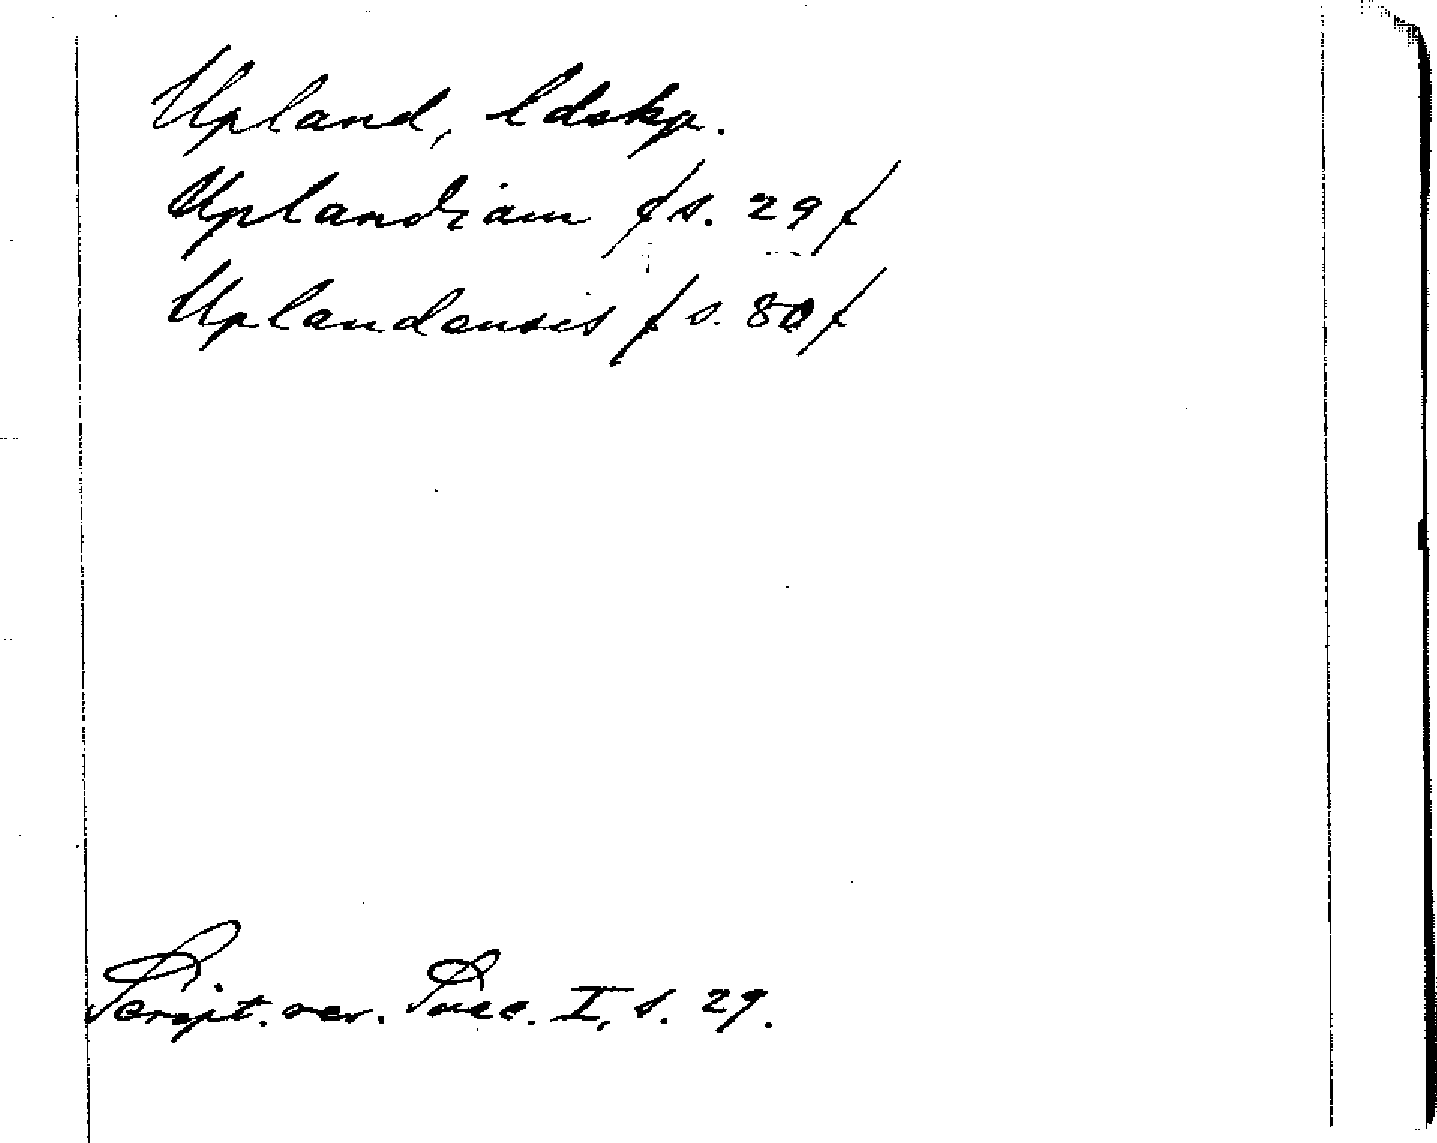 Upland, ldskp.
Uplandiam /s. 29/
Uplandensis /s. 80/
Script. rer. Suec. I, s. 29.